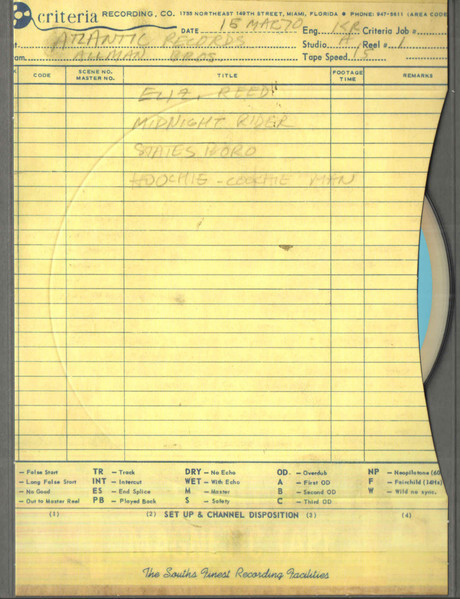 criteria RECORDING, CO. 1755 NORTHEAST 149TH STREET, MIAMI, FLORIDA • PHONE: 947-5611 (AREA CODE
DATE 15 MAR 70 Eng. Criteria Job #
t ATLANTIC RECORDS Studio A Reel # 1
am. ALLMAN BROS Tape Speed 15
CODE SCENE NO. MASTER NO. TITLE FOOTAGE TIME REMARKS
ELIZ. REED
MIDNIGHT RIDER
STATESBORO
HOOCHIE-COOCHIE MAN
— False Start TR — Track DRY — No Echo OD. — Overdub NP — Neopilotone (60
— Long False Start INT — Intercut WET — With Echo A — First OD F — Fairchild (14Hz)
— No Good ES — End Splice M — Master B — Second OD W — Wild no sync.
— Out to Master Reel PB — Played Back S — Safety C — Third OD
(1) (2) SET UP & CHANNEL DISPOSITION (3) (4)
The Souths Finest Recording Facilities